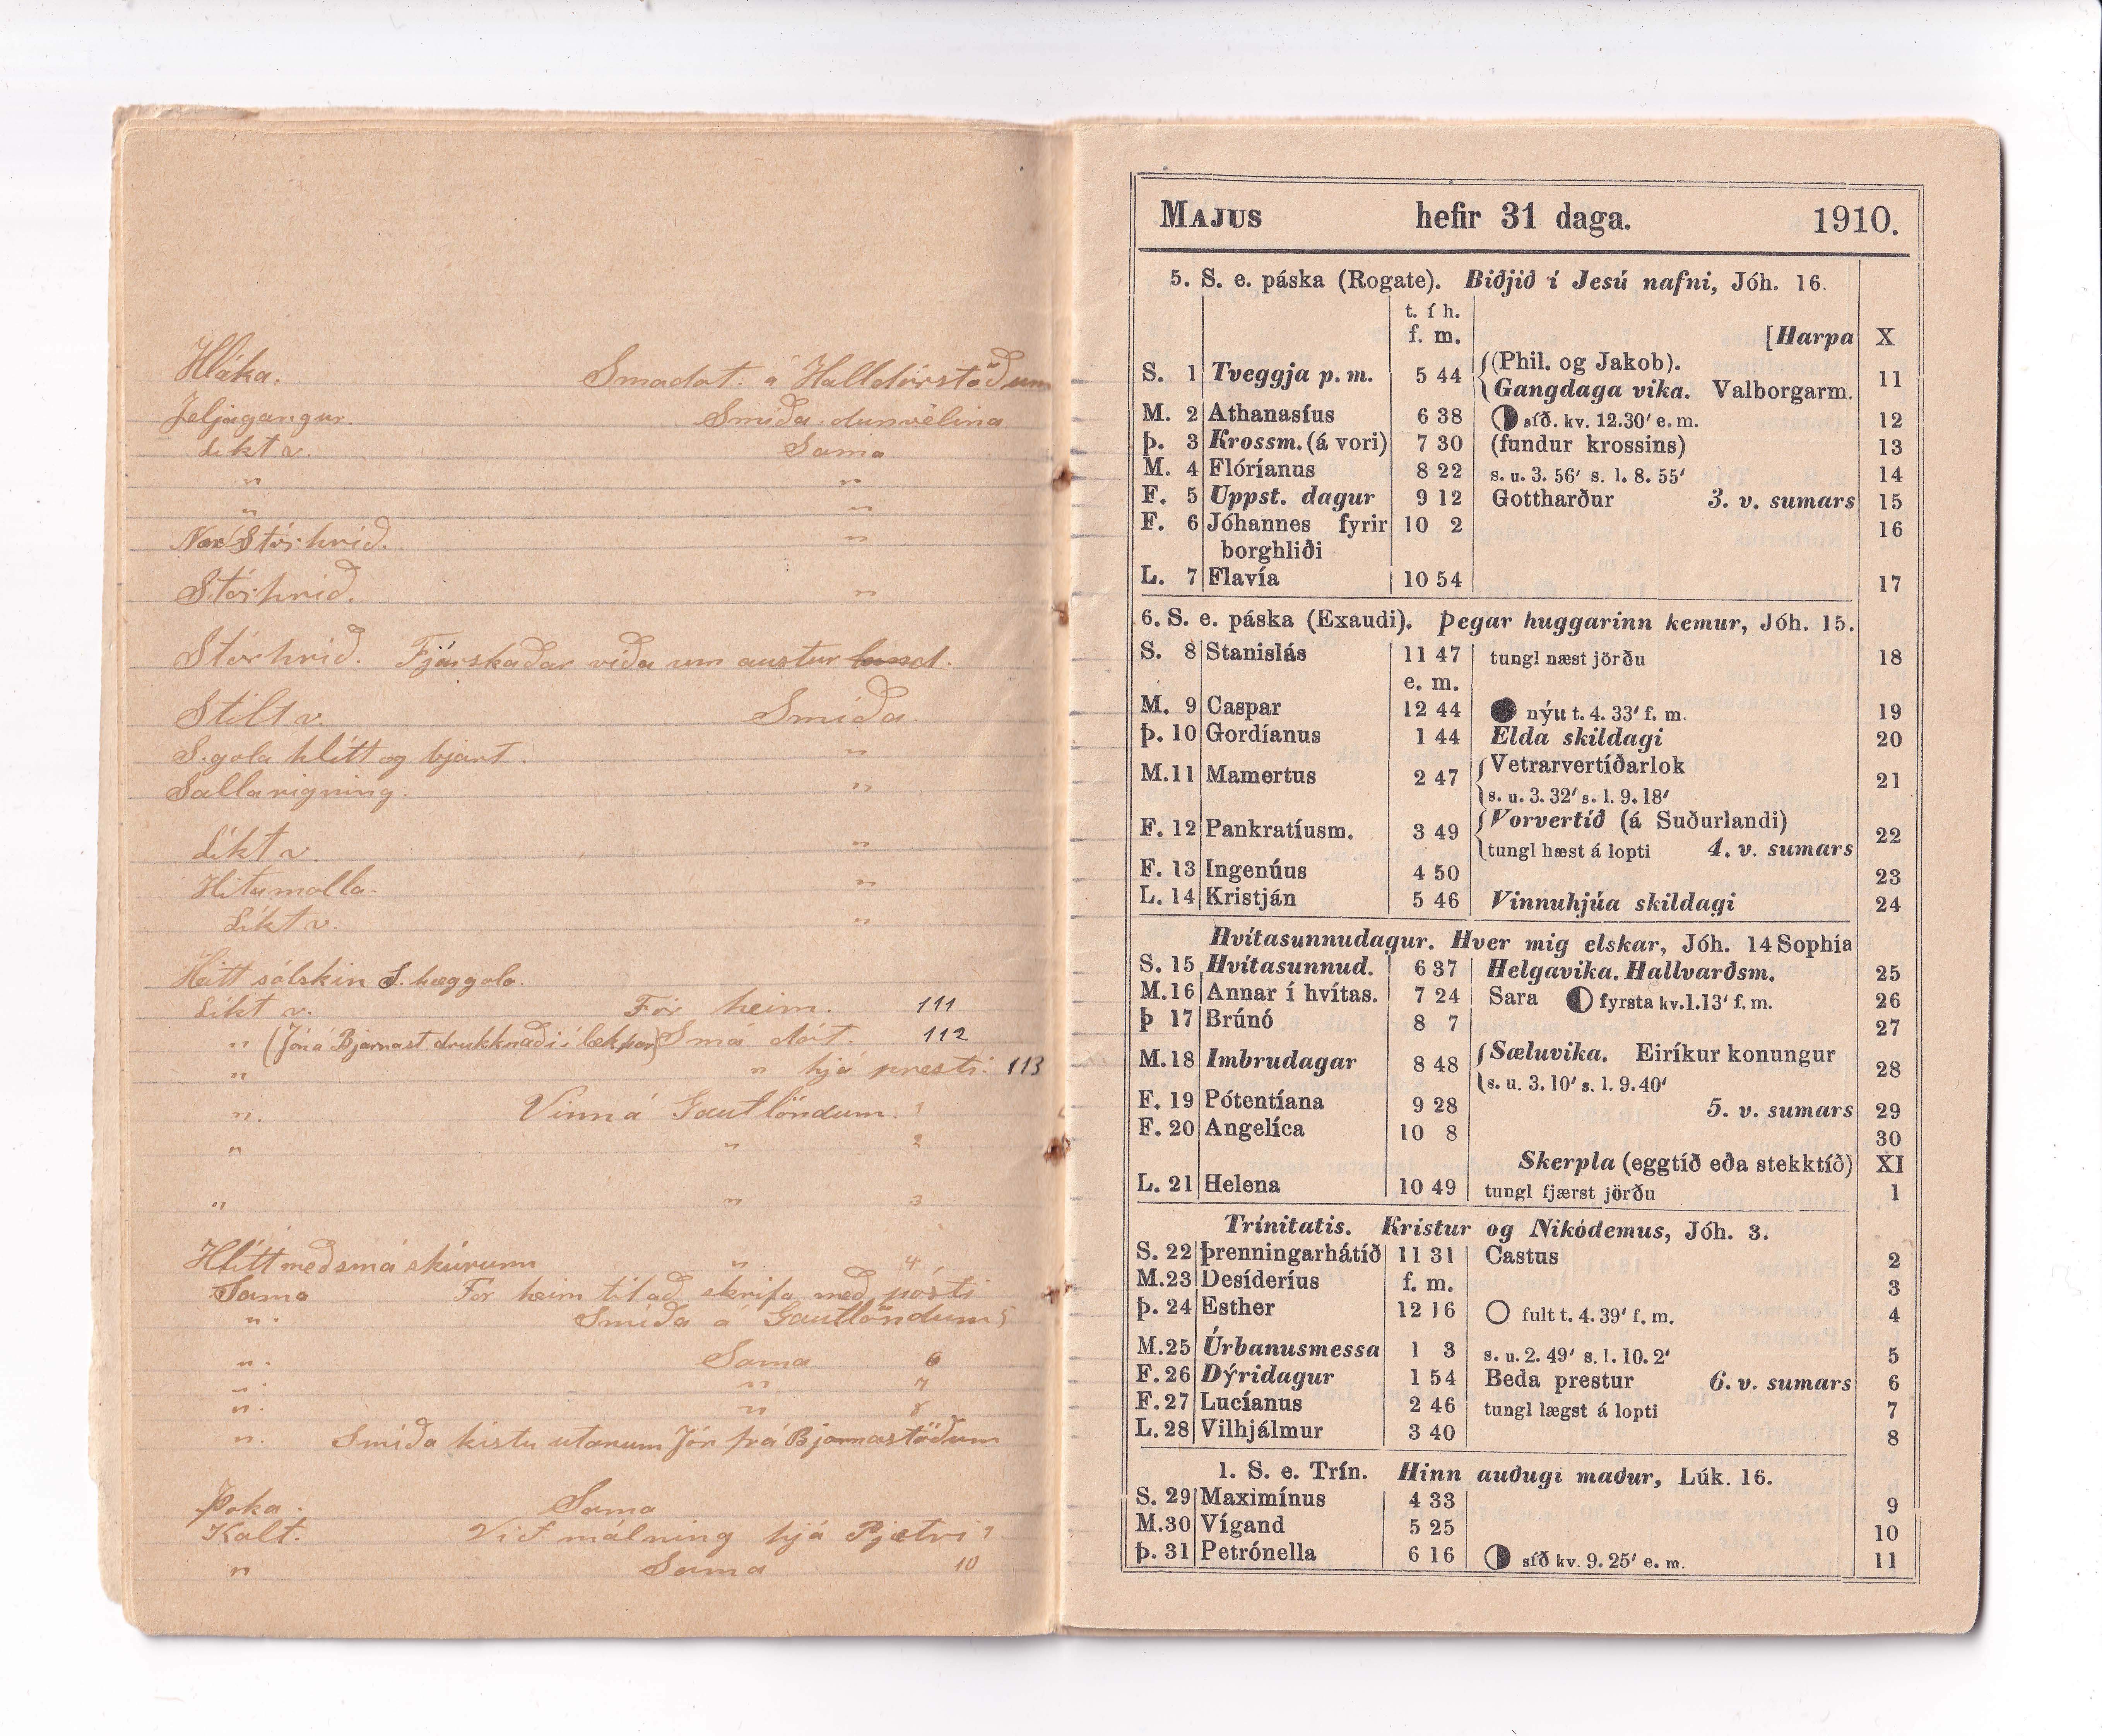 Hláka. Smadot. á Halldórstöðum
Jeljagangur. Smiða dunvélina
Líkt v. Sama
" "
" "
Nor Stórhrið. "
Stórhrið. "
Stórhrið. Fjárskaðar víða um austur land.
Stilt v. Smiða.
S. gola hlítt og bjart. "
Sallarigning. "
Líkt v. "
Hitamolla. "
Líkt v. "
Heitt sólskin S. hæggola.
Líkt v. Fór heim. 111
" (Jón á Bjarnast drukknaði í læk þar) Smá dót. 112
" " hjá presti. 113
". Vinn á Gautlöndum. 1
" " 2
" " 3
Hlítt með smá skúrum " 4
Sama Fór heim til að skrifa með pósti
". Smíða á Gautlöndum 5
". Sama 6
". " 7
". " 8
". Smíða kistu utanum Jón frá Bjarnastöðum
Þoka. Sama
Kalt. Við málning hjá Pjetri 9
" Sama 10
MAJUS hefir 31 daga. 1910.
5. S. e. páska (Rogate). Biðjið í Jesú nafni, Jóh. 16.
t. í h.
f. m. [Harpa X
S. 1 Tveggja p. m. 5 44 (Phil. og Jakob).
Gangdaga vika. Valborgarm. 11
M. 2 Athanasíus 6 38 síð. kv. 12.30′ e. m. 12
Þ. 3 Krossm. (á vori) 7 30 (fundur krossins) 13
M. 4 Flóríanus 8 22 s. u. 3. 56′ s. l. 8. 55′ 14
F. 5 Uppst. dagur 9 12 Gottharður 3. v. sumars 15
F. 6 Jóhannes fyrir 10 2 16
borghliði
L. 7 Flavía 10 54 17
6. S. e. páska (Exaudi). Þegar huggarinn kemur, Jóh. 15.
S. 8 Stanislás 11 47 tungl næst jörðu 18
e. m.
M. 9 Caspar 12 44 nýtt t. 4. 33′ f. m. 19
Þ. 10 Gordíanus 1 44 Elda skildagi 20
M. 11 Mamertus 2 47 Vetrarvertíðarlok 21
s. u. 3. 32′ s. l. 9. 18′
F. 12 Pankratíusm. 3 49 Vorvertíð (á Suðurlandi) 22
tungl hæst á lopti 4. v. sumars
F. 13 Ingenúus 4 50 23
L. 14 Kristján 5 46 Vinnuhjúa skildagi 24
Hvítasunnudagur. Hver mig elskar, Jóh. 14 Sophía
S. 15 Hvítasunnud. 6 37 Helgavika. Hallvarðsm. 25
M. 16 Annar í hvítas. 7 24 Sara fyrsta kv. 1. 13′ f. m. 26
Þ 17 Brúnó 8 7 27
M. 18 Imbrudagar 8 48 Sæluvika. Eiríkur konungur 28
s. u. 3. 10′ s. l. 9. 40′
F. 19 Pótentíana 9 28 5. v. sumars 29
F. 20 Angelíca 10 8 30
Skerpla (eggtíð eða stekktíð) XI
L. 21 Helena 10 49 tungl fjærst jörðu 1
Trínitatis. Kristur og Nikódemus, Jóh. 3.
S. 22 Þrenningarhátíð 11 31 Castus 2
M. 23 Desíderíus f. m. 3
Þ. 24 Esther 12 16 fult t. 4. 39′ f. m. 4
M. 25 Úrbanusmessa 1 3 s. u. 2. 49′ s. l. 10. 2′ 5
F. 26 Dýridagur 1 54 Beda prestur 6. v. sumars 6
F. 27 Lucíanus 2 46 tungl lægst á lopti 7
L. 28 Vilhjálmur 3 40 8
1. S. e. Trín. Hinn auðugi maður, Lúk. 16.
S. 29 Maximínus 4 33 9
M. 30 Vígand 5 25 10
Þ. 31 Petrónella 6 16 síð kv. 9. 25′ e. m. 11